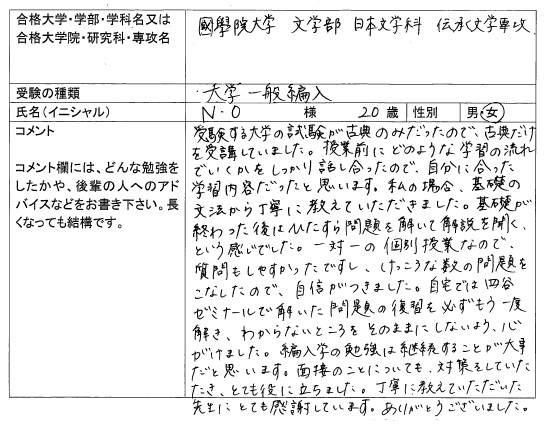 合格大学・学部・学科名又は
合格大学院・研究科・専攻名
國學院大学 文学部 日本文学科 伝承文学専攻
受験の種類
・大学一般編入
氏名(イニシャル)
N・O 様 20歳 性別 男・女
コメント
コメント欄には、どんな勉強を
したかや、後輩の人へのアド
バイスなどをお書き下さい。長
くなっても結構です。
受験する大学の試験が古典のみだったので、古典だけ
を受講していました。授業前にどのような学習の流れ
でいくかをしっかり話し合ったので、自分に合った
学習内容だったと思います。私の場合、基礎の
文法から丁寧に教えていただきました。基礎が
終わった後はひたすら問題を解いて解説を聞く、
という感じでした。一対一の個別授業なので、
質問もしやすかったですし、けっこうな数の問題を
こなしたので、自信がつきました。自宅では四谷
ゼミナールで解いた問題の復習を必ずもう一度
解き、わからないところをそのままにしないよう、心
がけました。編入学の勉強は継続することが大事
だと思います。面接のことについても、対策をしていた
だき、とても役に立ちました。丁寧に教えていただいた
先生にとても感謝しています。ありがとうございました。